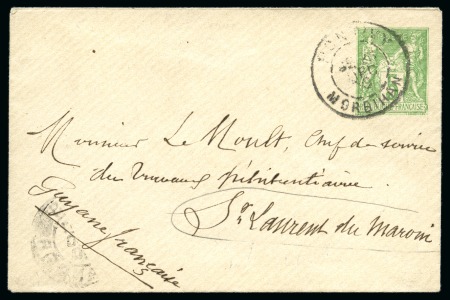 MORBIHAN
FRANÇAISE
Monsieur Le Moult, Chef de service
des travaux pénitentiaire
St Laurent du Maroni
Guyane française